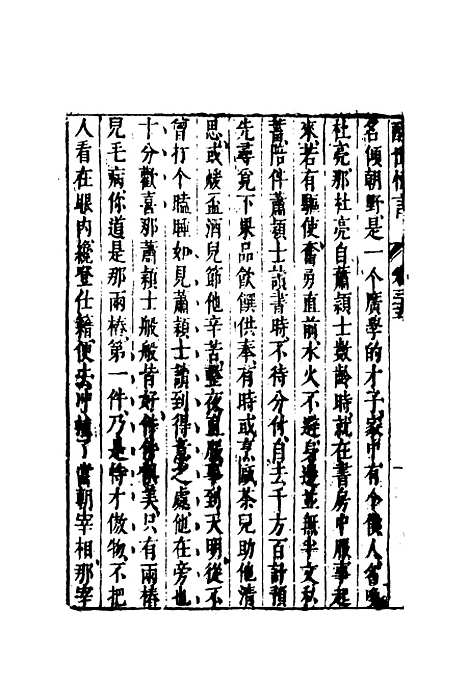 醒世恒言
名傾朝野是一个廣學的才子家中有个僕人名喚
杜亮那杜亮自蕭頴士數齡時就在書房中服事起
來若有驅使奮勇直前水火不避身邊並無半文私
蓄陪伴蕭穎士讀書時不待分付自去千方百計預
先尋覔下果品飲饌供奉有時或烹甌茶兒助他清
思或煖盃酒兒節他辛苦整夜直服事到天明從不
曾打个瞌睡如見蕭穎士讀到得意之處他在旁也
十分歡喜那蕭穎士般般皆好件件俱美只有兩樁
兒毛病你道是那兩樁第一件乃是恃才傲物不把
人看在眼内纔登仕籍便去冲撞了當朝宰相那宰